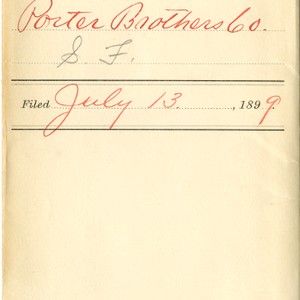 Porter Brothers Co.
S. F.
Filed July 13, 1899